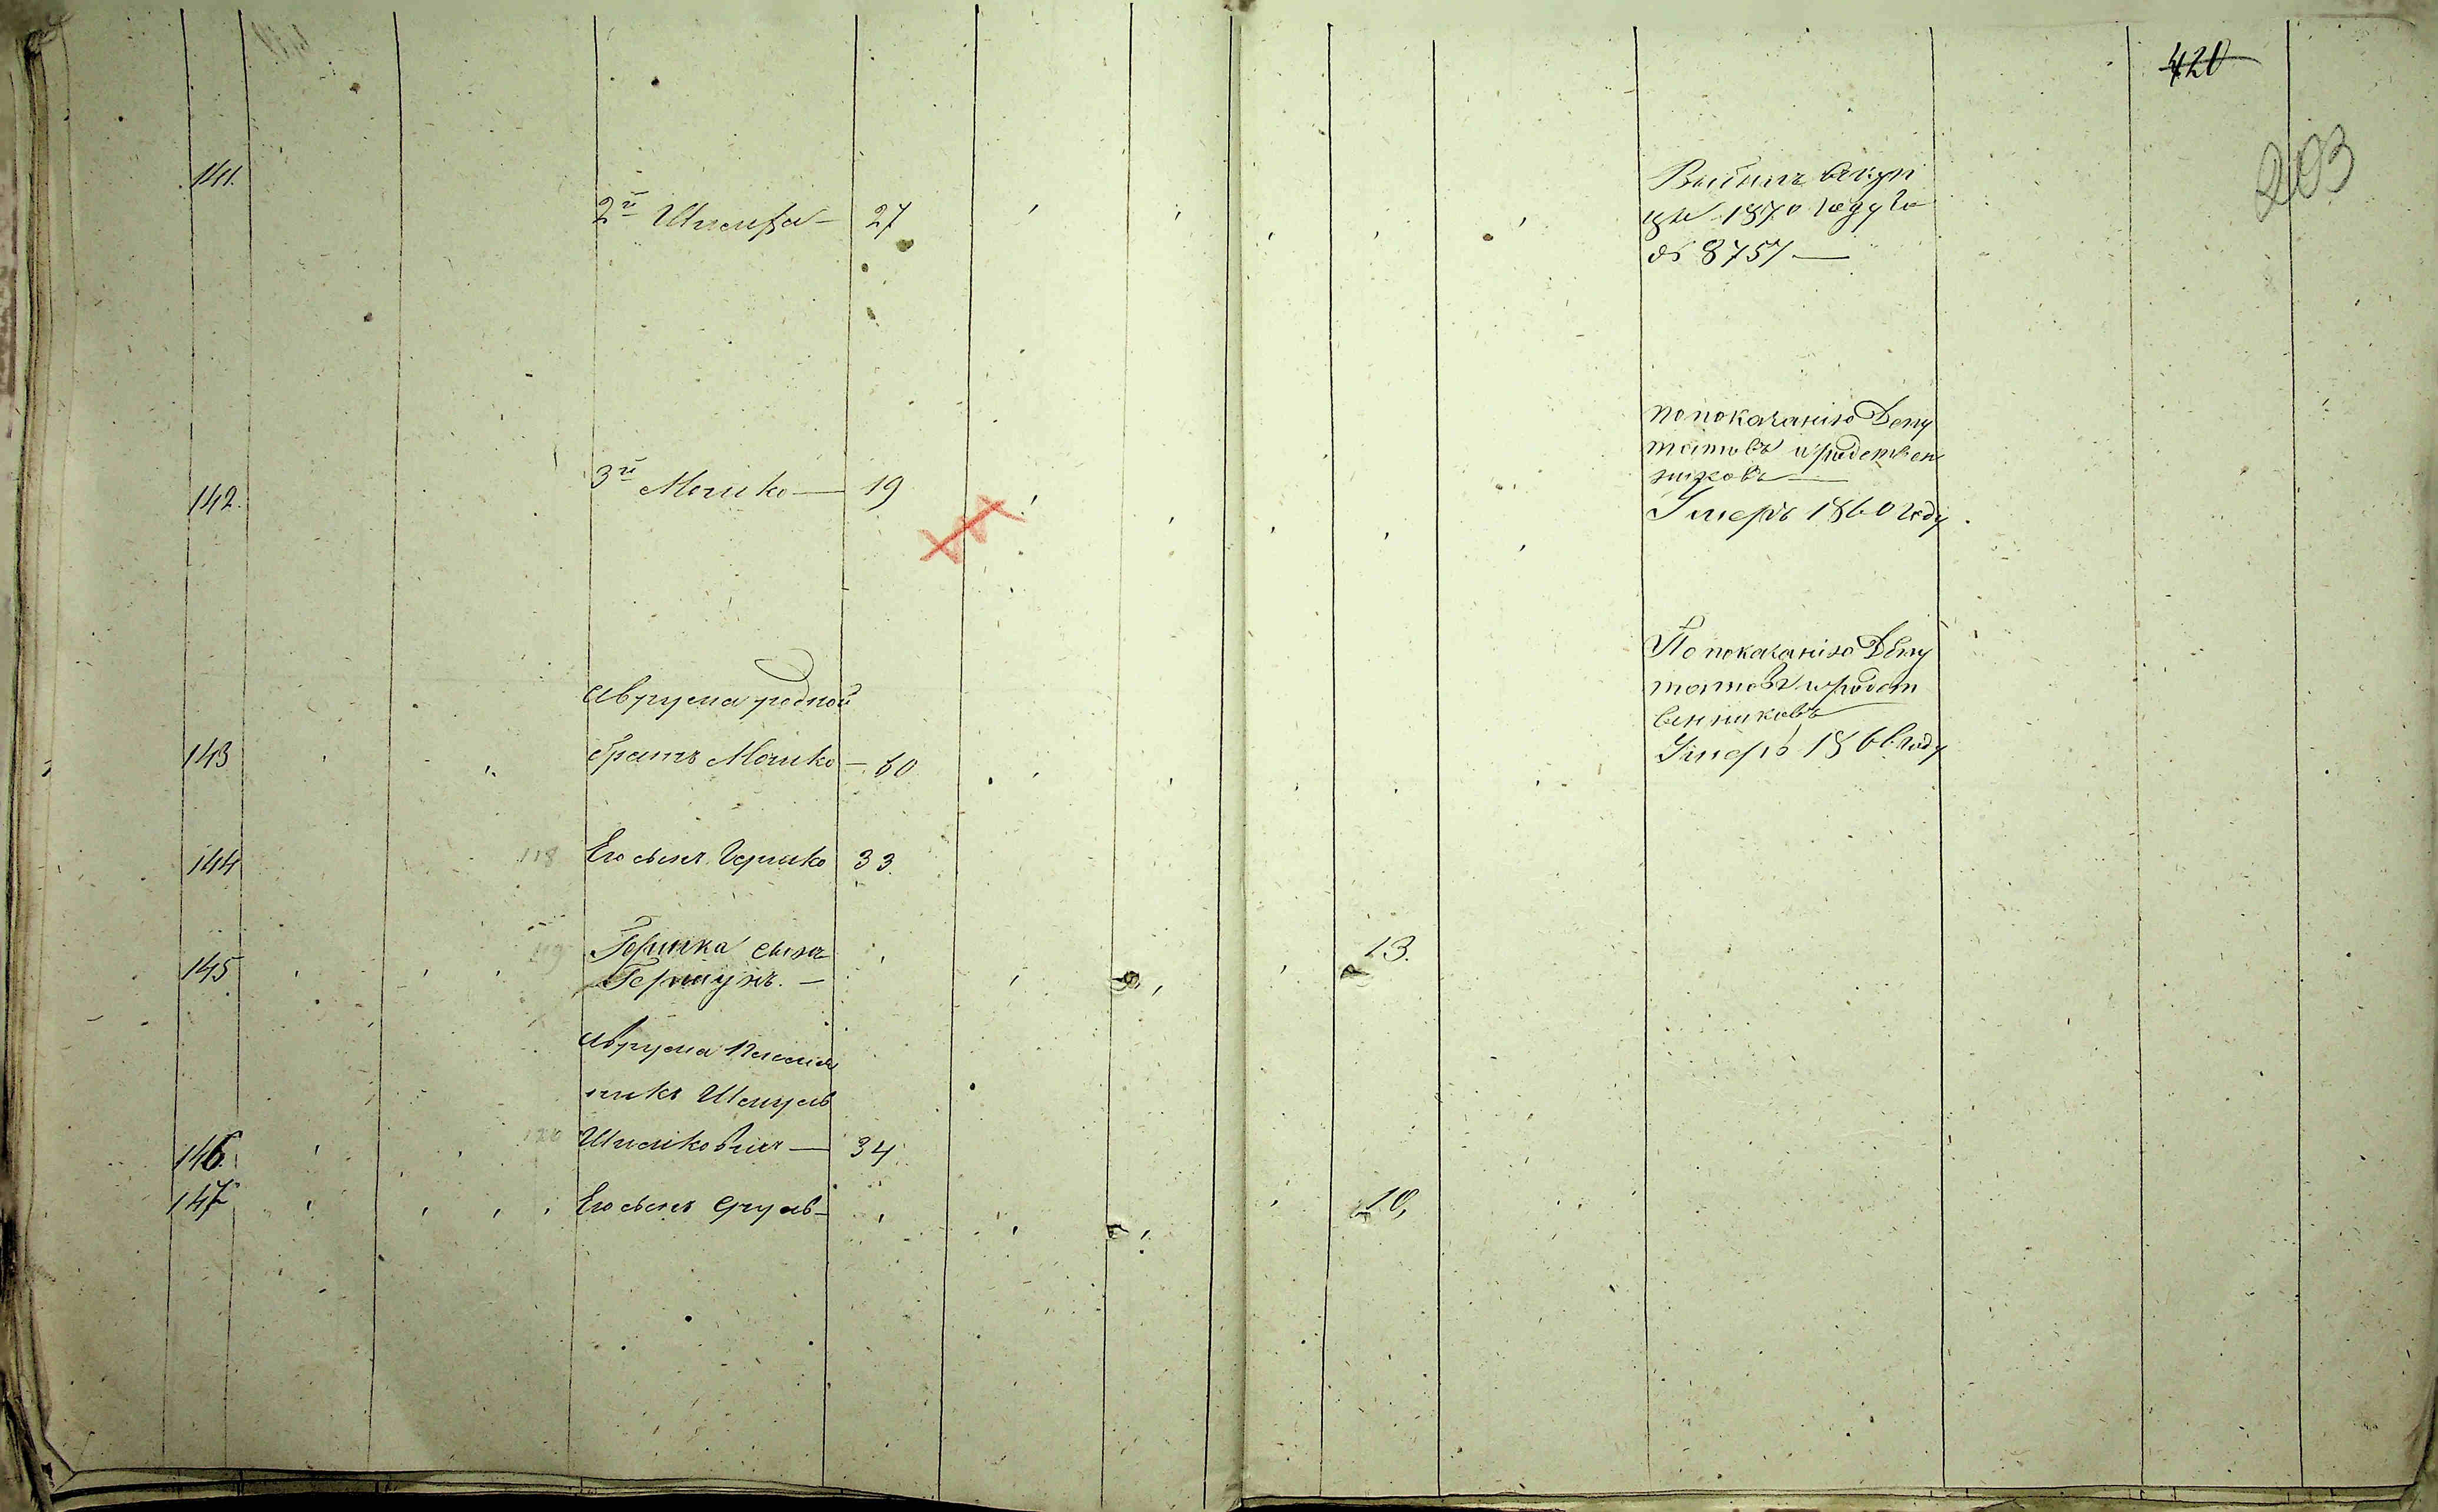 420
203
141.
2й Шлиома – 27
1870 году
8757 —
142.
3й Мошко — 19
по показанію Депу
татовъ и родствен
никовъ —
Умеръ 1860 году
143
Аврума родной
братъ Мошко – 60
По показанію Депу
татовъ и родст
венниковъ
Умеръ 1866 году
144
118 Его сынъ Гершко 33.
145
119 Гершка сынъ
Гершунъ. – 13.
Аврума племян
никъ Шмуль
146.
120 Шлиомковичъ — 34
147
Его сынъ Сруль – 10,